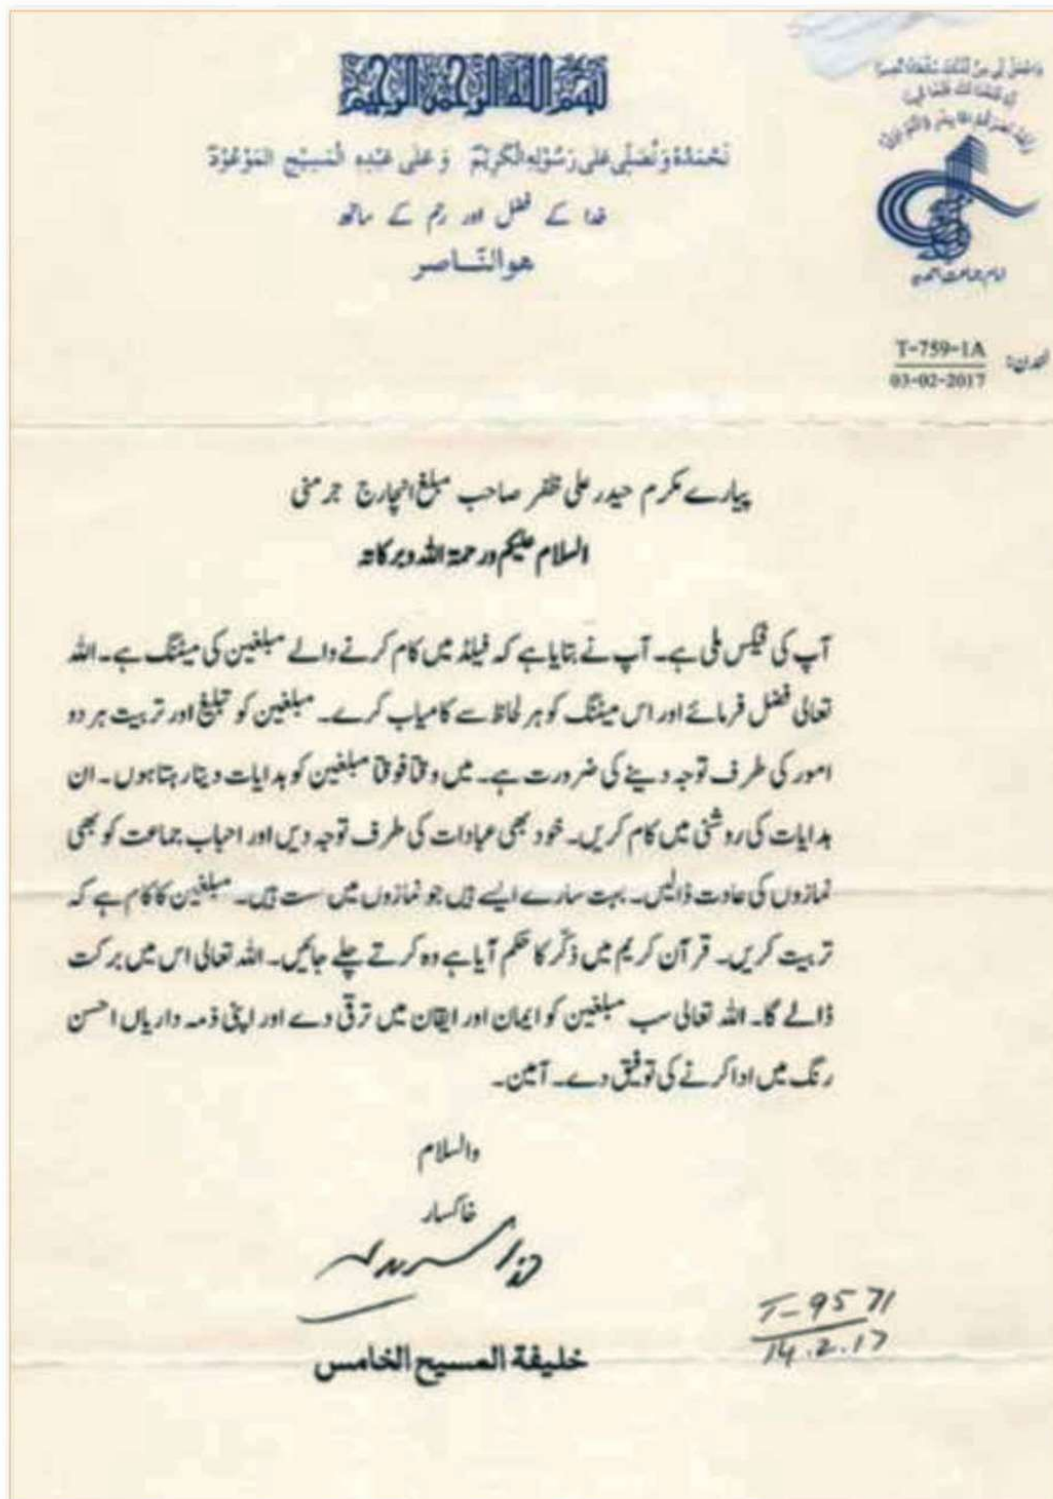 بسم الله الرحمن الرحيم
نَحْمَدُهُ وَنُصَلِّی عَلٰی رَسُوْلِهِ الْکَرِیْمِ وَعَلٰی عَبْدِهِ الْمَسِیْحِ الْمَوْعُوْدِ
خدا کے فضل اور رحم کے ساتھ
ھوالنّاصر
امام جماعت احمدیہ
لندن: T-759-1A
03-02-2017
پیارے مکرم حیدر علی ظفر صاحب مبلغ انچارج جرمنی
السلام علیکم ورحمۃ اللہ وبرکاتہ
آپ کی فیکس ملی ہے۔ آپ نے بتایا ہے کہ فیلڈ میں کام کرنے والے مبلغین کی میٹنگ ہے۔ اللہ
تعالیٰ فضل فرمائے اور اس میٹنگ کو ہر لحاظ سے کامیاب کرے۔ مبلغین کو تبلیغ اور تربیت ہر دو
امور کی طرف توجہ دینے کی ضرورت ہے۔ میں وقتاً فوقتاً مبلغین کو ہدایات دیتا رہتا ہوں۔ ان
ہدایات کی روشنی میں کام کریں۔ خود بھی عبادات کی طرف توجہ دیں اور احباب جماعت کو بھی
نمازوں کی عادت ڈالیں۔ بہت سارے ایسے ہیں جو نمازوں میں سست ہیں۔ مبلغین کا کام ہے کہ
تربیت کریں۔ قرآن کریم میں ذکّر کا حکم آیا ہے وہ کرتے چلے جائیں۔ اللہ تعالیٰ اس میں برکت
ڈالے گا۔ اللہ تعالیٰ سب مبلغین کو ایمان اور ایقان میں ترقی دے اور اپنی ذمہ داریاں احسن
رنگ میں ادا کرنے کی توفیق دے۔ آمین۔
والسلام
خاکسار
خلیفة المسیح الخامس
T-9571
14.2.17